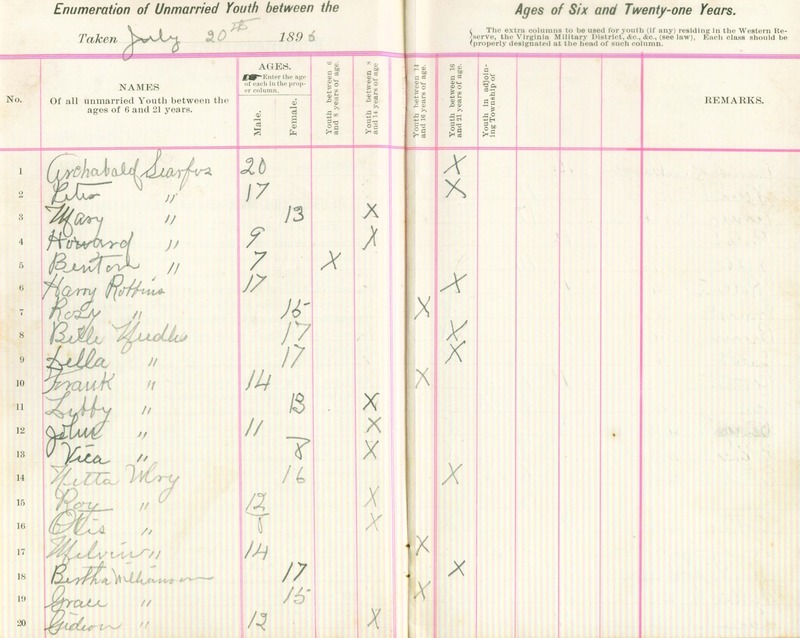 Enumeration of Unmarried Youth between the Ages of Six and Twenty-one Years.
Taken July 20th 1896
The extra columns to be used for youth (if any) residing in the Western Re-
serve, the Virginia Military District, &c., &c., (see law), Each class should be
properly designated at the head of such column.
No.
NAMES
Of all unmarried Youth between the
ages of 6 and 21 years.
AGES.
Enter the age
of each in the prop-
er column.
Male.
Female.
Youth between 6
and 8 years of age.
Youth between 8
and 14 years of age
Youth between 14
and 16 years of age.
Youth between 16
and 21 years of age.
Youth in adjoin-
ing Township of
REMARKS.
1 Archabald Searfos 20 X
2 " 17 X
3 Mary " 13 X
4 Howard " 9 X
5 Benton " 7 X
6 Harry Robbins 17 X
7 Rosy " 15 X
8 Belle Needles 17 X
9 Della " 17 X
10 Frank " 14 X
11 Lybby " 13 X
12 John " 11 X
13 Vica " 8 X
14 Netta 16 X
15 Roy " 12 X
16 Otis " 8 X
17 Melvin " 14 X
18 Bertha Williamson 17 X
19 Grace " 15 X
20 Gideon " 12 X